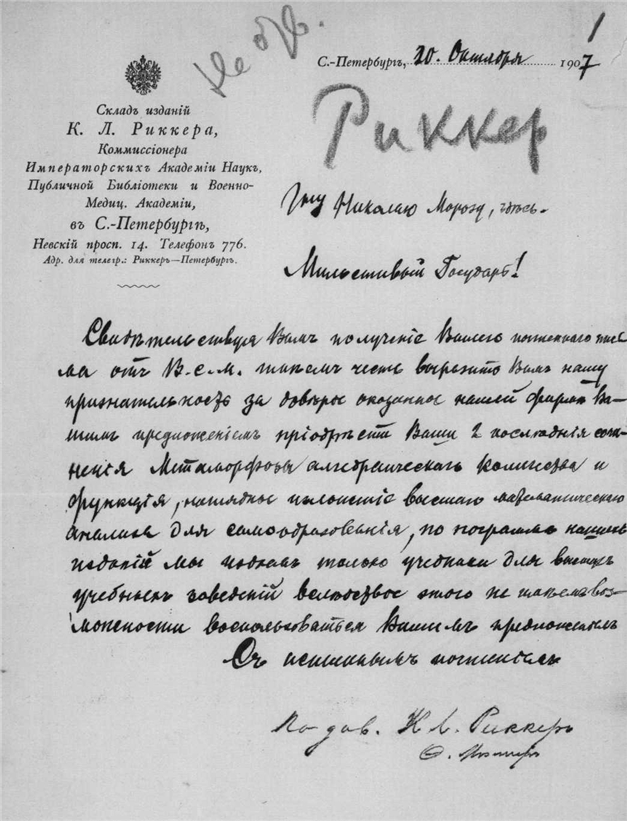 1
Не обр.
С.-Петербургъ, 20. Октября 1907
Складъ изданій
К. Л. Риккера,
Коммиссіонера
Императорскихъ Академіи Наукъ,
Публичной Библіотеки и Военно-
Медиц. Академіи,
въ С.-Петербургѣ,
Невскій просп. 14. Телефонъ 776.
Адр. для телегр.: Риккеръ—Петербургъ.
Риккер
Николаю Морозу, здѣсь.
Милостивый Государь!
Свидѣтельствуя Вамъ полученіе Вашего почтеннаго пись
ма отъ В.с.м. имѣемъ честь выразить Вамъ нашу
признательность за довѣріе оказанное нашей фирмѣ Ва-
шимъ предложеніемъ пріобрѣсти Ваши 2 послѣднія сочи
ненія Метаморфозы алгебраическаго и
функція, наглядное изложеніе высшаго математическаго
анализа для самообразованія, но программа нашихъ
изданій мы только учебники для высшихъ
учебныхъ заведеній вслѣдствіе этого не имѣемъ воз
можности воспользоваться Вашимъ предложеніемъ
Съ истиннымъ почтеніемъ
По дов. К. Л. Риккеръ